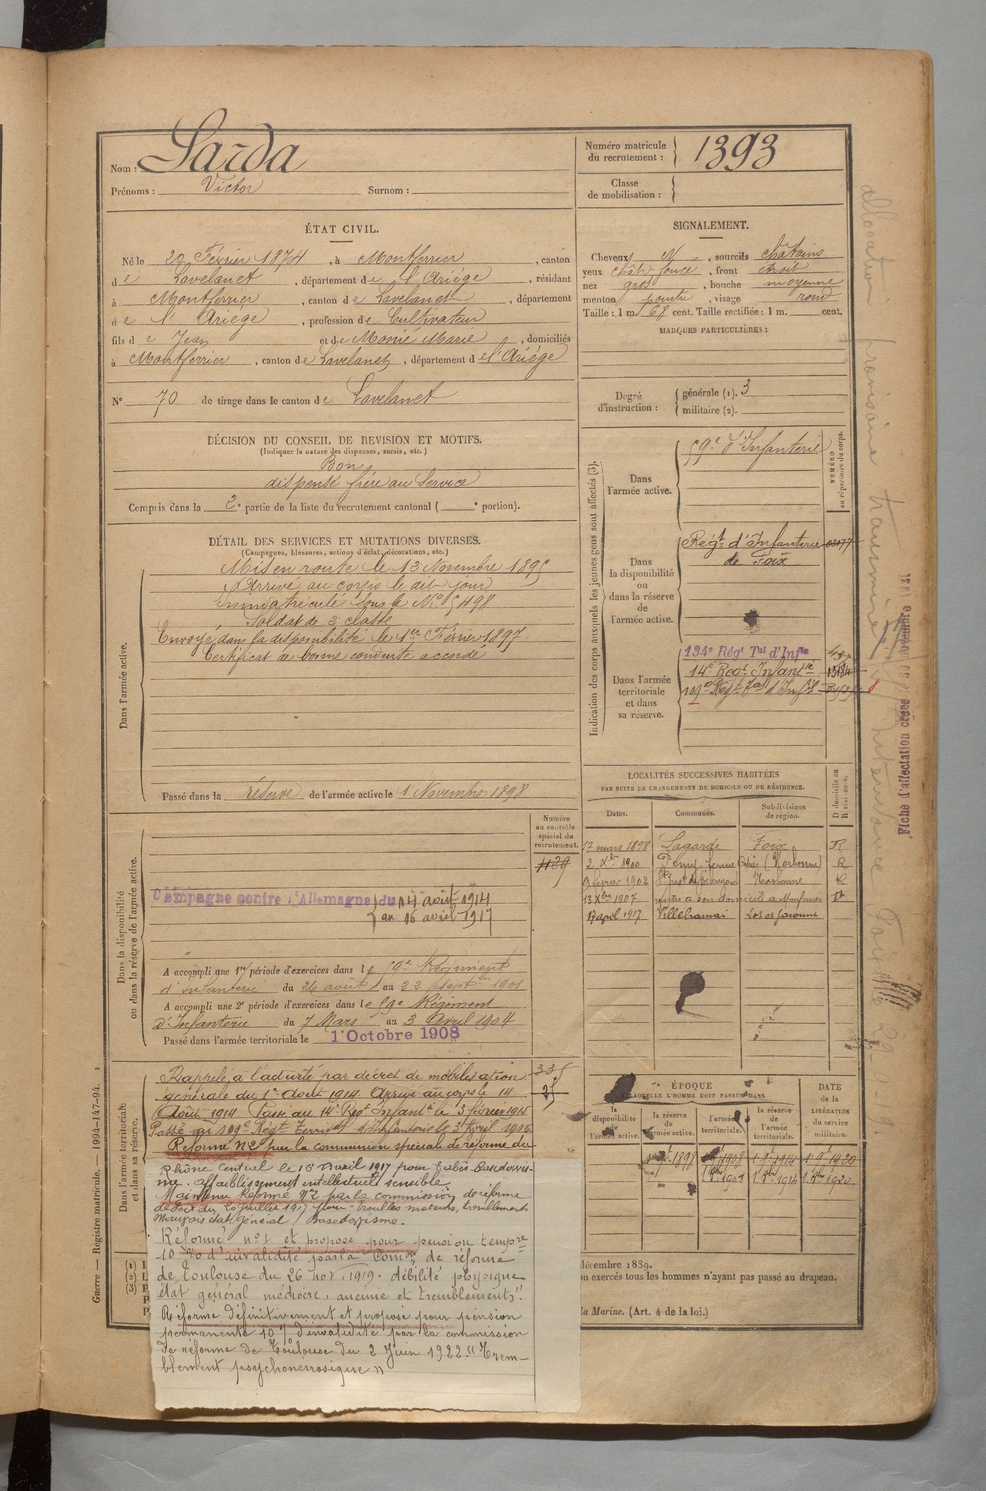 Nom : Sarda
Prénoms : Victor Surnom :
Numéro matricule du recrutement : 1393
Classe de mobilisation :
ÉTAT CIVIL.
Né le 20 Février 1874, à Montferrier, canton
de Lavelanet, département de l'Ariège, résidant
à Montferrier, canton de Lavelanet, département
de l'Ariège, profession de Cultivateur
fils de Jean et de Marie, domiciliés
à Montferrier, canton de Lavelanet, département de l'Ariège
N° 70 de tirage dans le canton de Lavelanet
SIGNALEMENT.
Cheveux N, sourcils châtains
yeux chât. foncé, front étroit
nez gros, bouche moyenne
menton pointu, visage rond
Taille : 1 m. 68 cent. Taille rectifiée : 1 m. cent.
MARQUES PARTICULIÈRES :
Degré d'instruction : générale (1). 3
militaire (2).
DÉCISION DU CONSEIL DE REVISION ET MOTIFS.
(Indiquer la nature des dispenses, sursis, etc.)
Bon
dispensé frère au Service
Compris dans la 2e partie de la liste du recrutement cantonal ( e portion).
DÉTAIL DES SERVICES ET MUTATIONS DIVERSES.
(Campagnes, blessures, actions d'éclat, décorations, etc.)
Dans l'armée active.
Mis en route le 13 Novembre 1895
Arrivé au corps le dit jour
Immatriculé sous le No
Soldat de 2 classe
Envoyé dans la disponibilité le 1er Février 1897.
Certificat de bonne conduite accordé
Passé dans la réserve de l'armée active le 1 Novembre 1898
Indication des corps auxquels les jeunes gens sont affectés (3).
NUMÉRO au répertoire du corps.
Dans l'armée active.
59e d'Infanterie
Dans la disponibilité ou dans la réserve de l'armée active.
Régt d'Infanterie
de Foix
Dans l'armée territoriale et dans sa réserve.
134e Régt Tal d'Infie
14e Regt Infantie
109e Régt Tal d'Infie
LOCALITÉS SUCCESSIVES HABITÉES
PAR SUITE DE CHANGEMENTS DE DOMICILE OU DE RÉSIDENCE.
Dates. Communes. Subdivisions de région. D domicile ou R résidence.
17 mars 1898 Lagarde Foix R
2 Xbre 1900 (Narbonne) R
1902 Narbonne R
13 Xbre 1907 rentre à son domicile à Montferrier D
17 april 1917 Lot et Garonne
Dans la disponibilité ou dans la réserve de l'armée active.
Numéro au contrôle spécial du recrutement.
1139
Campagne contre l'Allemagne du 14 août 1914
au 16 avril 1917
A accompli une 1re période d'exercices dans le 59e Régiment
d'infanterie du 24 août au 23 septb 1901
A accompli une 2e période d'exercices dans le 59e Régiment
d'Infanterie du 7 Mars au 3 Avril 1904
Passé dans l'armée territoriale le 1er Octobre 1908
Dans l'armée territoriale et dans sa réserve.
Rappelé à l'activité par décret de mobilisation
générale du 1er Août 1914. Arrivé au corps le 14
Août 1914. Passé au 14e Régt Infantie le 3 février 1915
Passé au 109e Régt Territl d'Infanterie le 3 Avril 1916
Réformé N° 2 par la commission spéciale de réforme du
Rhône Central le 16 avril 1917 pour
affaiblissement intellectuel sensible.
Maintenu Réformé N° 2 par la commission de réforme
du 20 juillet 1917 pour troubles moteurs, tremblements
Mauvais état général / Basedowisme.
Réformé n° 1 et proposé pour pension tempre
10 % d'invalidité par la Comon de réforme
de Toulouse du 26 nov. 1919. débilité physique
état général médiocre, anémie et tremblements".
Réformé définitivement et proposé pour pension
permanente 10 % d'invalidité par la commission
de réforme de Toulouse du 2 Juin 1922. "Trem-
blement psychonévrosique"
ÉPOQUE
À LAQUELLE L'HOMME DOIT PASSER DANS
la disponibilité de l'armée active. la réserve de l'armée active. l'armée territoriale. la réserve de l'armée territoriale. DATE de la LIBÉRATION du service militaire.
1 9bre 1898 1908 1 9bre 1914 1 9bre 1920
décembre 1889.
exercés tous les hommes n'ayant pas passé au drapeau.
la Marine. (Art. 4 de la loi.)
Guerre — Registre matricule. — 1994-147-94.
Fiche d'affectation créée